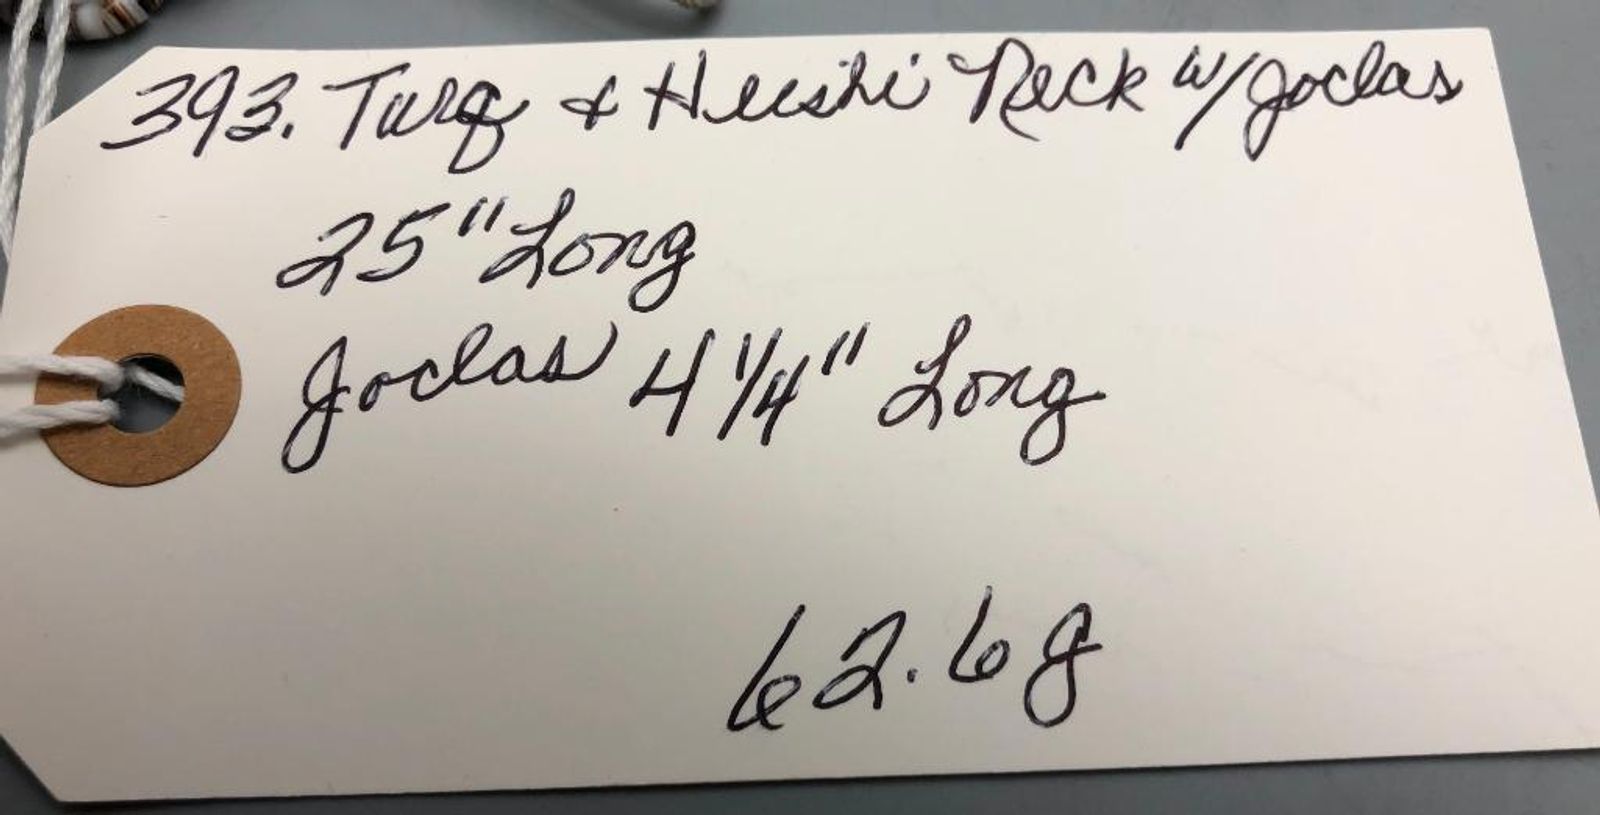 393. Turq & Heishi Neck w/Joclas
25" Long
Joclas 4 1/4" Long
62.6g